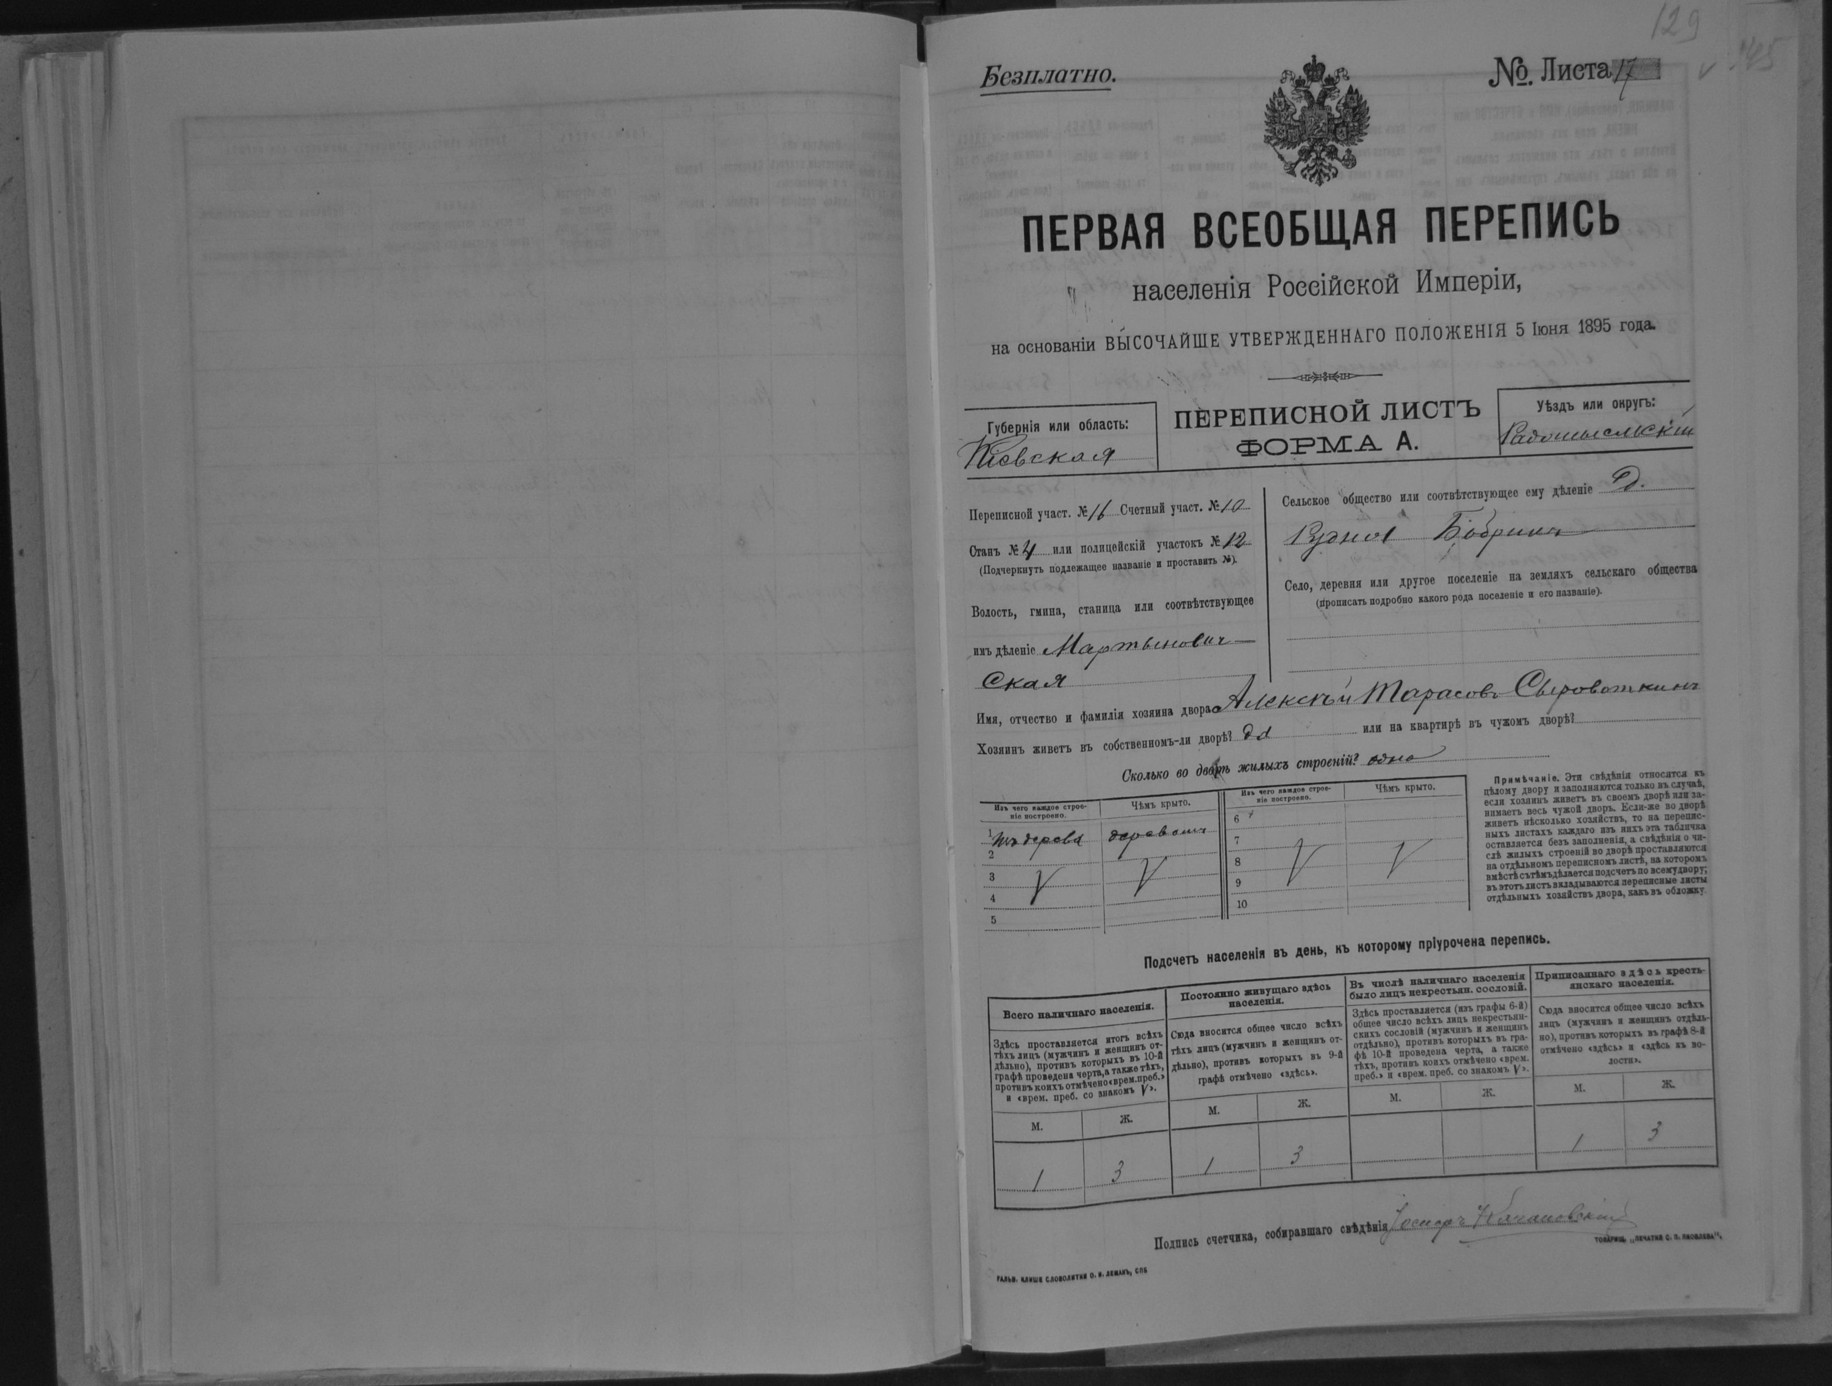 129
145
Безплатно.
№ Листа 17
ПЕРВАЯ ВСЕОБЩАЯ ПЕРЕПИСЬ
населенія Россійской Имперіи,
на основаніи ВЫСОЧАЙШЕ УТВЕРЖДЕННАГО ПОЛОЖЕНІЯ 5 Іюня 1895 года.
Губернія или область:
Кіевская
ПЕРЕПИСНОЙ ЛИСТЪ
ФОРМА А.
Уѣздъ или округъ:
Радомысльскій
Переписной участ. № 16 Счетный участ. № 10
Станъ № 4 или полицейскій участокъ № 12
(Подчеркнуть подлежащее названіе и проставить №).
Волость, гмина, станица или соотвѣтствующее
имъ дѣленіе Мартынович
ская
Сельское общество или соотвѣтствующее ему дѣленіе д.
Рудня Бобрика
Село, деревня или другое поселеніе на земляхъ сельскаго общества
(прописать подробно какого рода поселеніе и его названіе).
Имя, отчество и фамилія хозяина двора Алексѣй Тарасовъ Сыроваткинъ
Хозяинъ живетъ въ собственномъ-ли дворѣ? да или на квартирѣ въ чужомъ дворѣ?
Сколько во дворѣ жилыхъ строеній? одно
Изъ чего каждое строе-
ніе построено.
Чѣмъ крыто.
Изъ чего каждое строе-
ніе построено.
Чѣмъ крыто.
1 изъ дерева
2
3
4
5
6
7
8
9
10
Примѣчаніе. Эти свѣдѣнія относятся къ
цѣлому двору и заполняются только въ случаѣ,
если хозяинъ живетъ въ своемъ дворѣ или за-
нимаетъ весь чужой дворъ. Если-же во дворѣ
живетъ нѣсколько хозяйствъ, то на перепис-
ныхъ листахъ каждаго изъ нихъ эта табличка
оставляется безъ заполненія, а свѣдѣнія о чи-
слѣ жилыхъ строеній во дворѣ проставляются
на отдѣльномъ переписномъ листѣ, на которомъ
вмѣстѣ съ тѣмъ дѣлается подсчетъ по всему двору;
въ этотъ листъ вкладываются переписные листы
отдѣльныхъ хозяйствъ двора, какъ въ обложку.
Подсчетъ населенія въ день, къ которому пріурочена перепись.
Всего наличнаго населенія.
Здѣсь проставляется итогъ всѣхъ
тѣхъ лицъ (мужчинъ и женщинъ от-
дѣльно), противъ которыхъ въ 10-й
графѣ проведена черта, а также тѣхъ,
противъ коихъ отмѣчено «врем. преб.»
и «врем. преб. со знакомъ V».
М.
Ж.
1
3
Постоянно живущаго здѣсь
населенія.
Сюда вносится общее число всѣхъ
тѣхъ лицъ (мужчинъ и женщинъ от-
дѣльно), противъ которыхъ въ 9-й
графѣ отмѣчено «здѣсь».
М.
Ж.
1
3
Въ числѣ наличнаго населенія
было лицъ некрестьян. сословій.
Здѣсь проставляется (изъ графы 6-й)
общее число всѣхъ лицъ некрестьян-
скихъ сословій (мужчинъ и женщинъ
отдѣльно), противъ которыхъ въ гра-
фѣ 10-й проведена черта, а также
тѣхъ, противъ коихъ отмѣчено «врем.
преб.» и «врем. преб. со знакомъ V».
М.
Ж.
Приписаннаго здѣсь кресть-
янскаго населенія.
Сюда вносится общее число всѣхъ
лицъ (мужчинъ и женщинъ отдѣль-
но), противъ которыхъ въ графѣ 8-й
отмѣчено «здѣсь» и «здѣсь къ во-
лости».
М.
Ж.
1
3
Подпись счетчика, собиравшаго свѣдѣнія Іосифъ Качановскій
ТОВАРИЩ. „ПЕЧАТНЯ С. П. ЯКОВЛЕВА“.
ГАЛЬВ. КЛИШЕ СЛОВОЛИТНИ О. И. ЛЕМАНЪ, СПБ